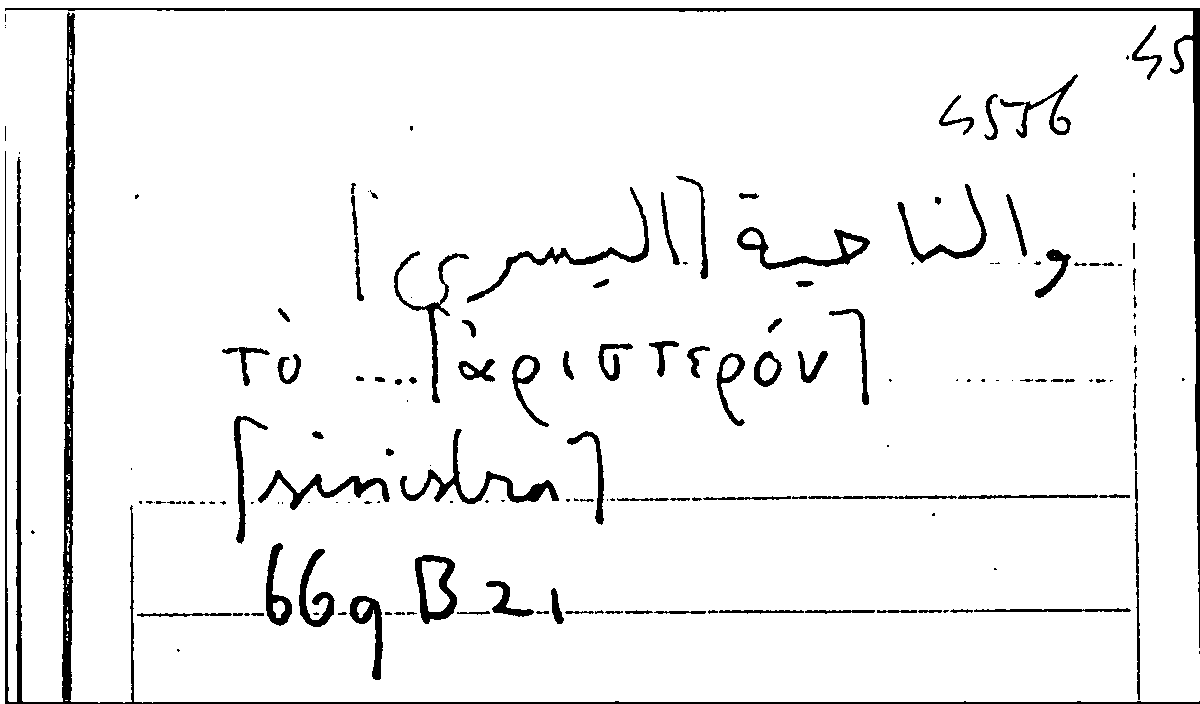 45
4556
والناحية [اليسرى]
τὸ ....[ἀριστερόν]
[sinistra]
669 B 21